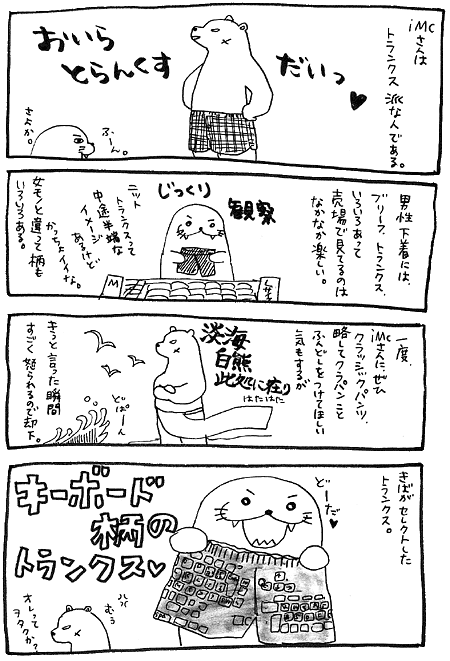 iMCさんは
トランクス派な人である。
おいら
とらんくす
だいっ♥
ふーん。
さよか。
男性下着には、
ブリーフ、トランクス、
いろいろあって
売場で見てるのは
なかなか楽しい。
じっくり
観察
ニット
トランクスって
中途半端な
イメージ
あるけど
かっちょイイな。
女モノと違って柄も
いろいろある。
M
一度、
iMCさんに、ぜひ
クラッシックパンツ、
略してクラパンこと
ふんどしをつけてほしい
気もするが
淡海
白熊
此処に在り
はたはた
どぱーん
きっと言った瞬間
すごく怒られるので却下。
きばがセレクトした
トランクス。
どーだ♥
キーボード
柄の
トランクス♥
むぅ
オレって
ヲタクか?